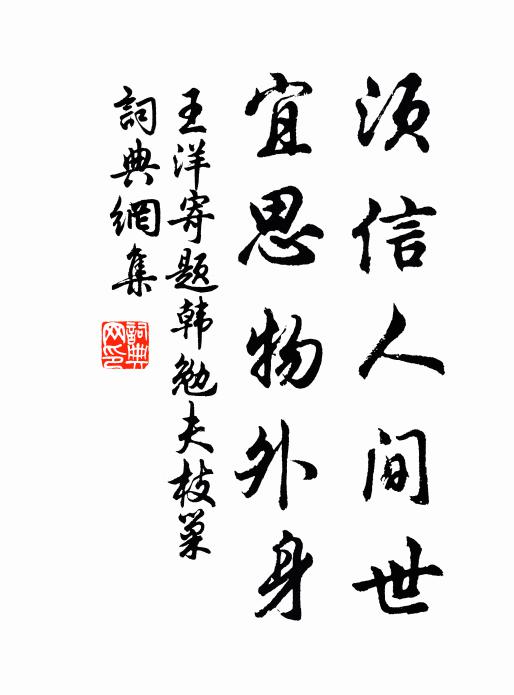 须信人间世
宜思物外身
王洋寄题韩勉夫枝巢
詞典網集
詞典網印